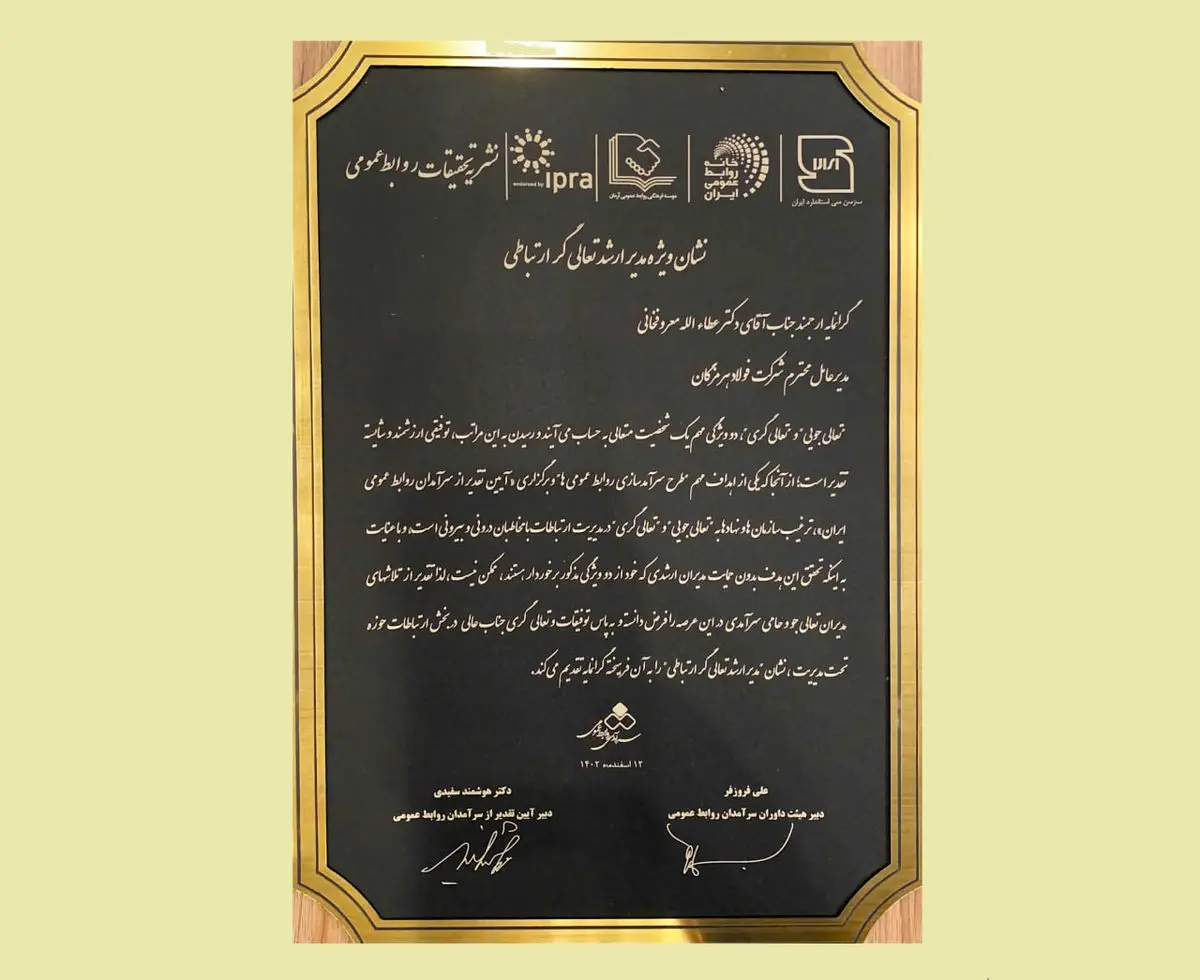 نشریه تحقیقات روابط عمومی
endorsed by ipra
موسسه فرهنگی روابط عمومی آرمان
خانه
روابط
عمومی
ایران
سازمان ملی استاندارد ایران
نشان ویژه مدیر ارشد تعالی گر ارتباطی
گرانمایه ارجمند جناب آقای دکتر عطاء الله معروفخانی
مدیرعامل محترم شرکت فولاد هرمزگان
"تعالی جویی" و "تعالی گری"، دو ویژگی مهم یک شخصیت متعالی به حساب می آیند و رسیدن به این مراتب، توفیقی ارزشمند و شایسته
تقدیر است؛ از آنجا که یکی از اهداف مهم "طرح سرآمدسازی روابط عمومی ها" و برگزاری «آیین تقدیر از سرآمدان روابط عمومی
ایران»، ترغیب سازمان ها و نهادها به "تعالی جویی" و "تعالی گری" در مدیریت ارتباطات با مخاطبان درونی و بیرونی است، و با عنایت
به اینکه تحقق این هدف بدون حمایت مدیران ارشدی که خود از دو ویژگی مذکور برخوردار هستند، ممکن نیست، لذا تقدیر از تلاشهای
مدیران تعالی جو و حامی سرآمدی در این عرصه را فرض دانسته و به پاس توفیقات و تعالی گری جناب عالی در بخش ارتباطات حوزه
تحت مدیریت، نشان "مدیر ارشد تعالی گر ارتباطی" را به آن فرهیخته گرانمایه تقدیم می کند.
۱۲ اسفندماه ۱۴۰۲
علی فروزفر
دبیر هیئت داوران سرآمدان روابط عمومی
دکتر هوشمند سفیدی
دبیر آیین تقدیر از سرآمدان روابط عمومی